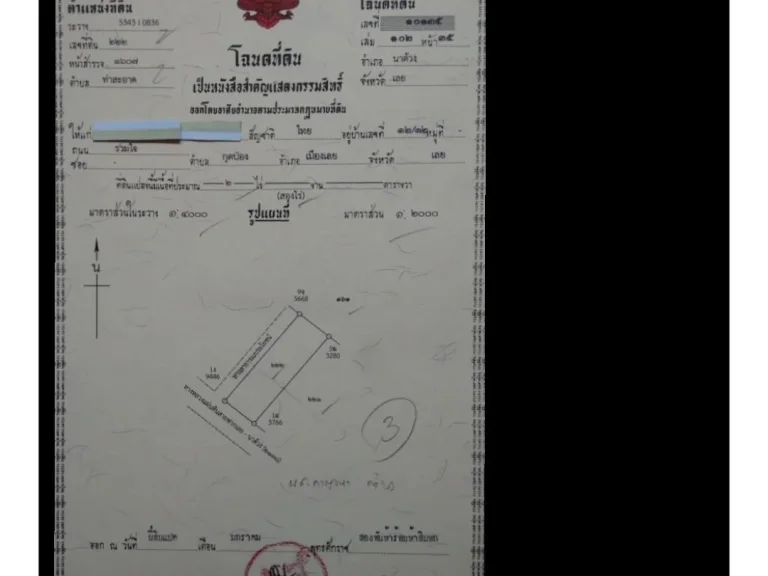 ตำแหน่งที่ดิน
โฉนดที่ดิน
ระวาง 5343 I 0836
เลขที่ ๑๐๑๓๕
เลขที่ดิน ๒๒๒
เล่ม ๑๐๒ หน้า ๓๕
หน้าสำรวจ ๑๖๐๗
โฉนดที่ดิน
อำเภอ นาด้วง
ตำบล ท่าสะอาด
จังหวัด เลย
เป็นหนังสือสำคัญแสดงกรรมสิทธิ์
ออกโดยอาศัยอำนาจตามประมวลกฎหมายที่ดิน
ให้แก่ สัญชาติ ไทย อยู่บ้านเลขที่ หมู่ที่
ถนน ร่วมใจ
ซอย ตำบล กุดป่อง อำเภอ เมืองเลย จังหวัด เลย
ที่ดินแปลงนี้มีเนื้อที่ประมาณ ๒ ไร่ งาน ตารางวา
(สองไร่)
มาตราส่วนในระวาง ๑:๔๐๐๐ รูปแผนที่ มาตราส่วน ๑:๒๐๐๐
น
5668
๑๖๑
3280
ทางสาธารณประโยชน์
๒๒๒
9446
๒๒๑
3766
3
ออก ณ วันที่ ยี่สิบแปด เดือน มกราคม พุทธศักราช